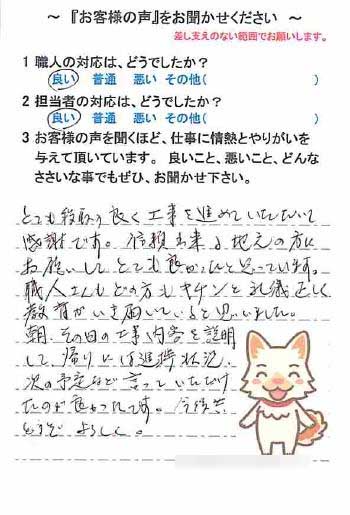 ～ 『お客様の声』をお聞かせください ～
差し支えのない範囲でお願いします。
1 職人の対応は、どうでしたか？
良い 普通 悪い その他( )
2 担当者の対応は、どうでしたか？
良い 普通 悪い その他( )
3 お客様の声を聞くほど、仕事に情熱とやりがいを
与えて頂いています。 良いこと、悪いこと、どんな
ささいな事でもぜひ、お聞かせ下さい。
とても段取り良く工事を進めていただいて
感謝です。信頼出来る地元の方に
お願いしてとても良かったと思っています。
職人さんもどの方もキチンと礼儀正しく
教育がいき届いていると思いました。
朝、その日の工事内容を説明
して、帰りには進捗状況、
次の予定など言っていただけ
たのが良かったです。今後共
どうぞ よろしく。